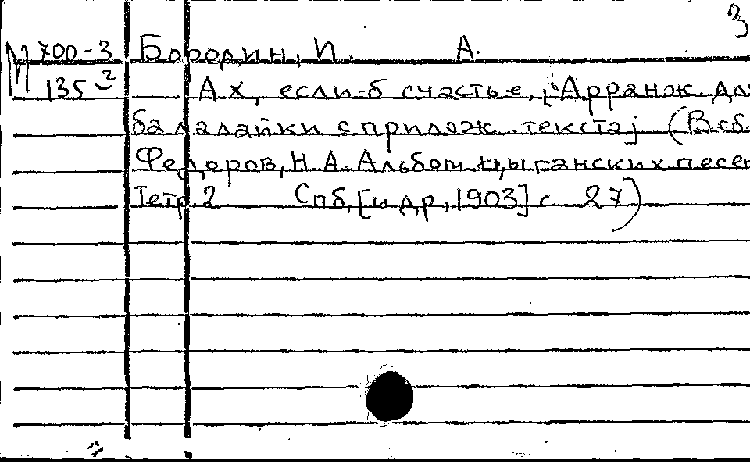 3
М 700-3 Бородин, И. А.
135-2 Ах, если-б счастье, [Арранж. для
балалайки с прилож. текста] (В сб.
Федоров, Н. А. Альбом цыганских песен
Тетр. 2 Спб, [и др., 1903] с 27)